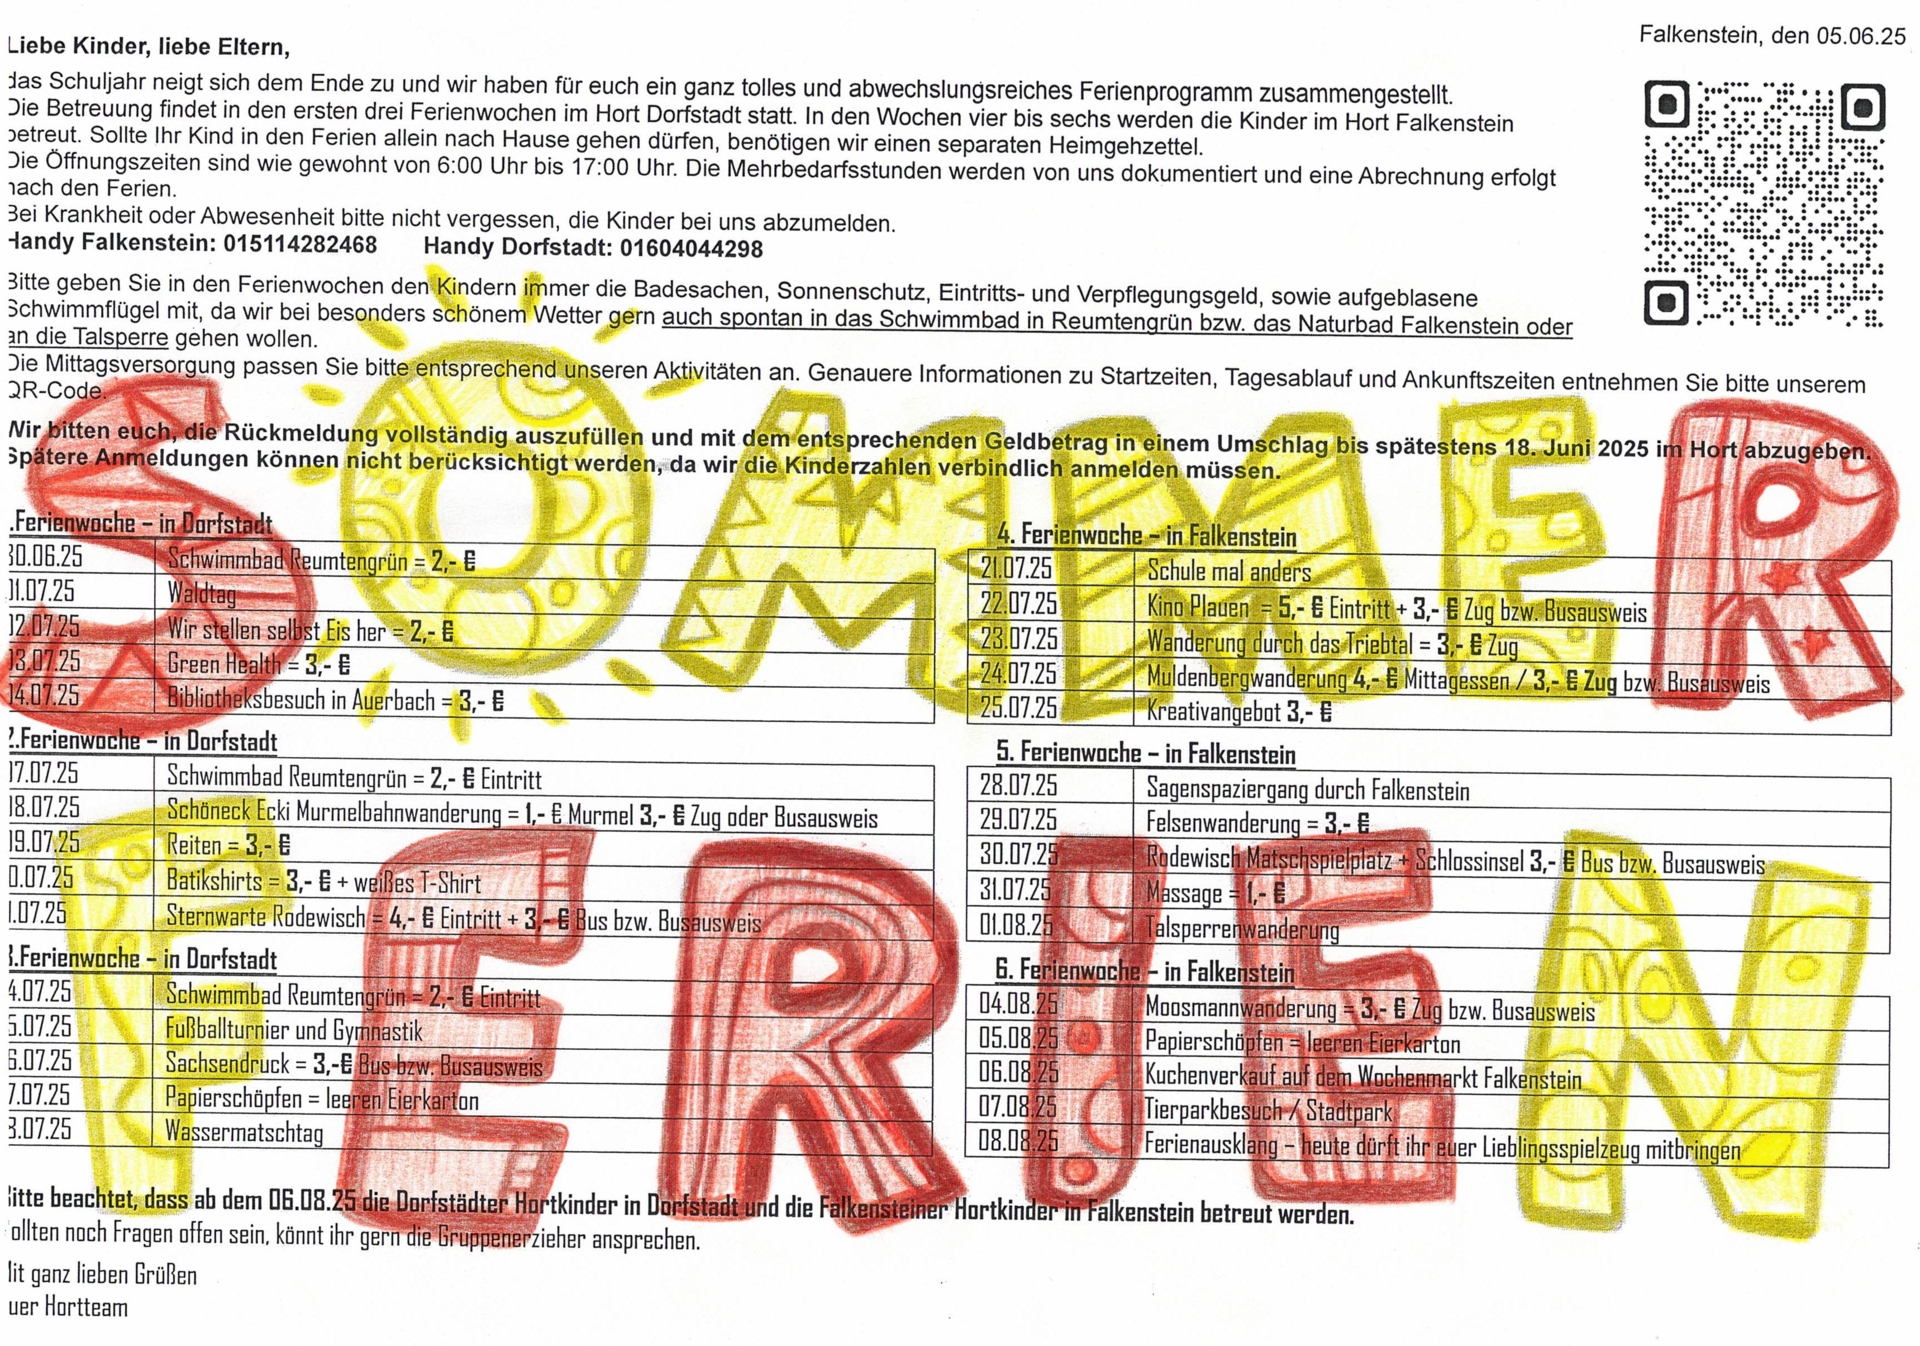 Falkenstein, den 05.06.25
Liebe Kinder, liebe Eltern,
das Schuljahr neigt sich dem Ende zu und wir haben für euch ein ganz tolles und abwechslungsreiches Ferienprogramm zusammengestellt.
Die Betreuung findet in den ersten drei Ferienwochen im Hort Dorfstadt statt. In den Wochen vier bis sechs werden die Kinder im Hort Falkenstein
betreut. Sollte Ihr Kind in den Ferien allein nach Hause gehen dürfen, benötigen wir einen separaten Heimgehzettel.
Die Öffnungszeiten sind wie gewohnt von 6:00 Uhr bis 17:00 Uhr. Die Mehrbedarfsstunden werden von uns dokumentiert und eine Abrechnung erfolgt
nach den Ferien.
Bei Krankheit oder Abwesenheit bitte nicht vergessen, die Kinder bei uns abzumelden.
Handy Falkenstein: 015114282468 Handy Dorfstadt: 01604044298
Bitte geben Sie in den Ferienwochen den Kindern immer die Badesachen, Sonnenschutz, Eintritts- und Verpflegungsgeld, sowie aufgeblasene
Schwimmflügel mit, da wir bei besonders schönem Wetter gern auch spontan in das Schwimmbad in Reumtengrün bzw. das Naturbad Falkenstein oder
an die Talsperre gehen wollen.
Die Mittagsversorgung passen Sie bitte entsprechend unseren Aktivitäten an. Genauere Informationen zu Startzeiten, Tagesablauf und Ankunftszeiten entnehmen Sie bitte unserem
QR-Code.
Wir bitten euch, die Rückmeldung vollständig auszufüllen und mit dem entsprechenden Geldbetrag in einem Umschlag bis spätestens 18. Juni 2025 im Hort abzugeben.
Spätere Anmeldungen können nicht berücksichtigt werden, da wir die Kinderzahlen verbindlich anmelden müssen.
SOMMER
.Ferienwoche – in Dorfstadt
30.06.25 Schwimmbad Reumtengrün = 2,- €
01.07.25 Waldtag
02.07.25 Wir stellen selbst Eis her = 2,- €
03.07.25 Green Health = 3,- €
04.07.25 Bibliotheksbesuch in Auerbach = 3,- €
2.Ferienwoche – in Dorfstadt
07.07.25 Schwimmbad Reumtengrün = 2,- € Eintritt
08.07.25 Schöneck Ecki Murmelbahnwanderung = 1,- € Murmel 3,- € Zug oder Busausweis
09.07.25 Reiten = 3,- €
0.07.25 Batikshirts = 3,- € + weißes T-Shirt
1.07.25 Sternwarte Rodewisch = 4,- € Eintritt + 3,- € Bus bzw. Busausweis
3.Ferienwoche – in Dorfstadt
4.07.25 Schwimmbad Reumtengrün = 2,- € Eintritt
5.07.25 Fußballturnier und Gymnastik
6.07.25 Sachsendruck = 3,-€ Bus bzw. Busausweis
7.07.25 Papierschöpfen = leeren Eierkarton
8.07.25 Wassermatschtag
4. Ferienwoche – in Falkenstein
21.07.25 Schule mal anders
22.07.25 Kino Plauen = 5,- € Eintritt + 3,- € Zug bzw. Busausweis
23.07.25 Wanderung durch das Triebtal = 3,- € Zug
24.07.25 Muldenbergwanderung 4,- € Mittagessen / 3,- € Zug bzw. Busausweis
25.07.25 Kreativangebot 3,- €
5. Ferienwoche – in Falkenstein
28.07.25 Sagenspaziergang durch Falkenstein
29.07.25 Felsenwanderung = 3,- €
30.07.25 Rodewisch Matschspielplatz + Schlossinsel 3,- € Bus bzw. Busausweis
31.07.25 Massage = 1,- €
01.08.25 Talsperrenwanderung
6. Ferienwoche – in Falkenstein
04.08.25 Moosmannwanderung = 3,- € Zug bzw. Busausweis
05.08.25 Papierschöpfen = leeren Eierkarton
06.08.25 Kuchenverkauf auf dem Wochenmarkt Falkenstein
07.08.25 Tierparkbesuch / Stadtpark
08.08.25 Ferienausklang – heute dürft ihr euer Lieblingsspielzeug mitbringen
FERIEN
Bitte beachtet, dass ab dem 06.08.25 die Dorfstädter Hortkinder in Dorfstadt und die Falkensteiner Hortkinder in Falkenstein betreut werden.
ollten noch Fragen offen sein, könnt ihr gern die Gruppenerzieher ansprechen.
it ganz lieben Grüßen
uer Hortteam